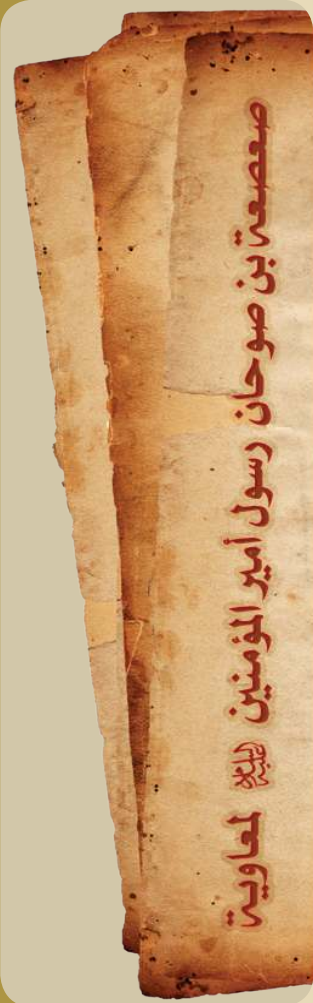 صعصعة بن صوحان رسول أمير المؤمنين عليه السلام لمعاوية